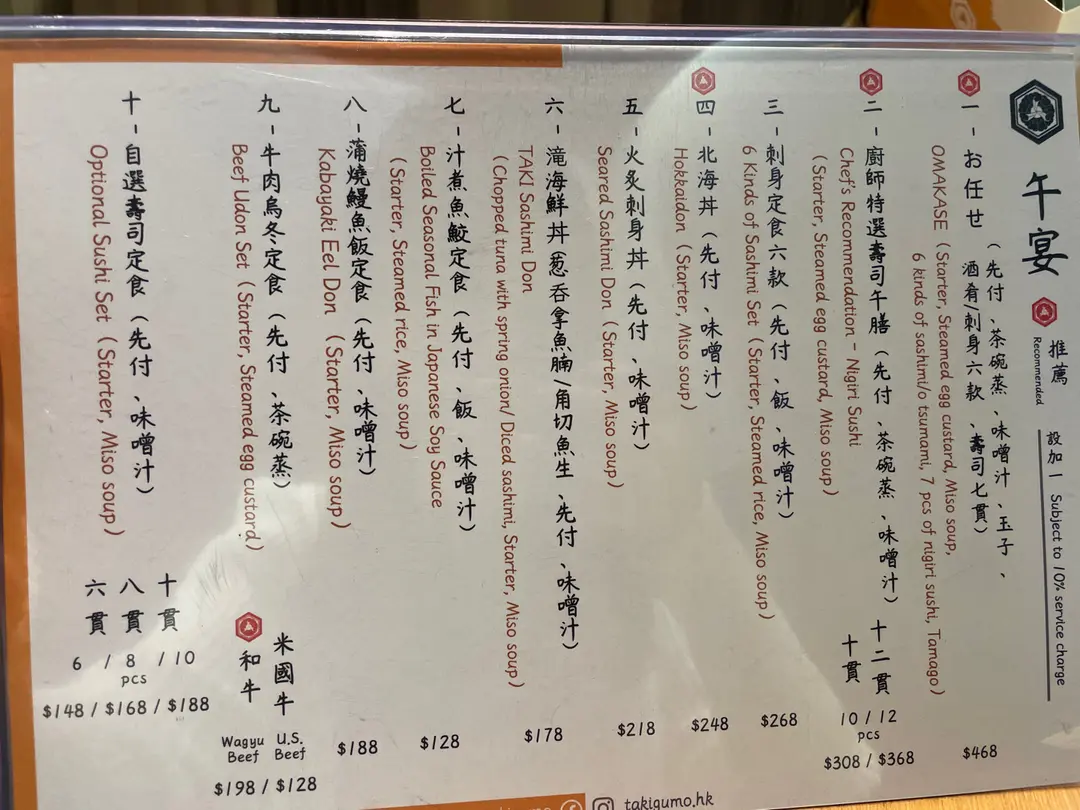 午宴
推薦
Recommended
設加一 Subject to 10% service charge
一 - お任せ (先付、茶碗蒸、味噌汁、玉子、
酒肴刺身六款、壽司七貫)
OMAKASE (Starter, Steamed egg custard, Miso soup,
6 kinds of sashimi/o tsumami, 7 pcs of nigiri sushi, Tamago)
$468
二 - 廚師特選壽司午膳 (先付、茶碗蒸、味噌汁)
十二貫
十貫
Chef's Recommendation - Nigiri Sushi
(Starter, Steamed egg custard, Miso soup)
10 / 12
pcs
$308 / $368
三 - 刺身定食六款 (先付、飯、味噌汁)
6 Kinds of Sashimi Set (Starter, Steamed rice, Miso soup)
$268
四 - 北海丼 (先付、味噌汁)
Hokkaidon (Starter, Miso soup)
$248
五 - 火炙刺身丼 (先付、味噌汁)
Seared Sashimi Don (Starter, Miso soup)
$218
六 - 滝海鮮丼 (葱吞拿魚腩/角切魚生、先付、味噌汁)
TAKI Sashimi Don
(Chopped tuna with spring onion/ Diced sashimi, Starter, Miso soup)
$178
七 - 汁煮魚鮫定食 (先付、飯、味噌汁)
Boiled Seasonal Fish in Japanese Soy Sauce
(Starter, Steamed rice, Miso soup)
$128
八 - 蒲燒鰻魚飯定食 (先付、味噌汁)
Kabayaki Eel Don (Starter, Miso soup)
$188
九 - 牛肉烏冬定食 (先付、茶碗蒸)
Beef Udon Set (Starter, Steamed egg custard)
米國牛
和牛
U.S. Beef
Wagyu Beef
$198 / $128
十 - 自選壽司定食 (先付、味噌汁)
Optional Sushi Set (Starter, Miso soup)
十貫
八貫
六貫
6 / 8 / 10
pcs
$148 / $168 / $188
takigumo.hk